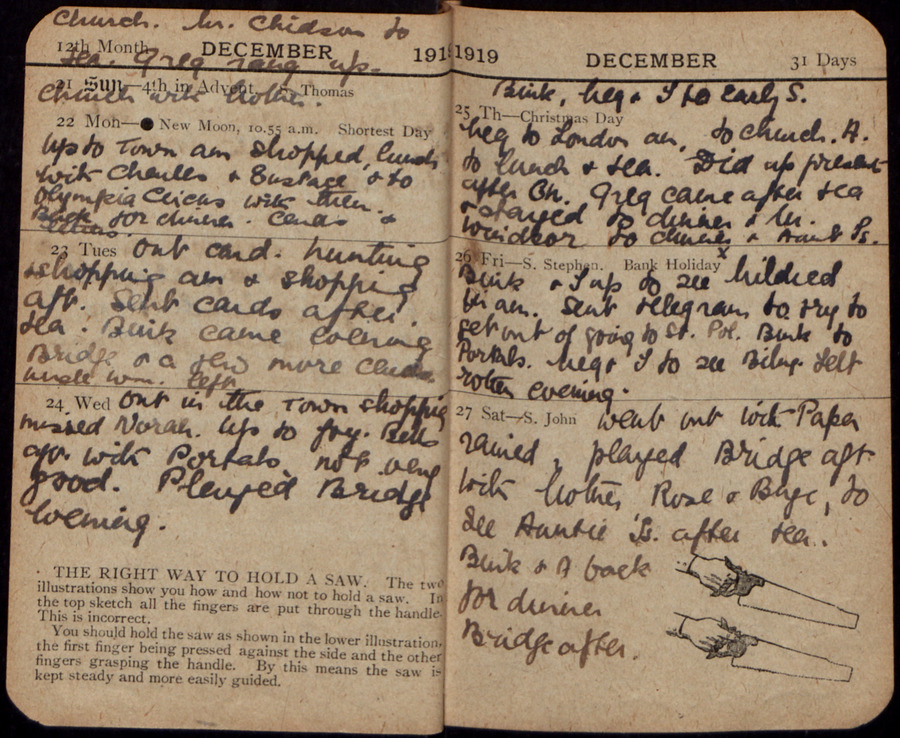 Church. Mr. Chidson to
12th Month DECEMBER 1919
tea. Greg rang up.
21 Sun—4th in Advent. S. Thomas
Church with Mother.
22 Mon—● New Moon, 10.55 a.m. Shortest Day
Up to Town am shopped, lunch
with Charles & Eustace & to
Olympia Circus with them.
Back for dinner. Cards &
letters.
23 Tues Out card. hunting
& shopping am & shopping
aft. Sent cards after
tea. Bink came evening
Bridge & a few more cards
Uncle Wm. left
24 Wed Out in the Town shopping
missed Norah. Up to
aft. with Portals not very
good. Played Bridge
evening.
THE RIGHT WAY TO HOLD A SAW. The two
illustrations show you how and how not to hold a saw. In
the top sketch all the fingers are put through the handle.
This is incorrect.
You should hold the saw as shown in the lower illustration,
the first finger being pressed against the side and the other
fingers grasping the handle. By this means the saw is
kept steady and more easily guided.
1919 DECEMBER 31 Days
Bink, Meg & I to early S.
25 Th—Christmas Day
Meg to London am, to church. A.
to lunch & tea. Did up present
after Ch. Greg came after tea
& stayed to dinner & Mr.
Windsor to dinner & Aunt Is.
26 Fri—S. Stephen. Bank Holiday
Bink & I up to see Mildred
in am. Sent telegram to try to
get out of going to St. Pol. Bink to
Portals. Meg & I to see Felt
rotten evening.
27 Sat—S. John Went out with Papa
rained, played Bridge aft
with Mother Rose &, to
see Auntie Is. after tea.
Bink & A back
for dinner
Bridge after.